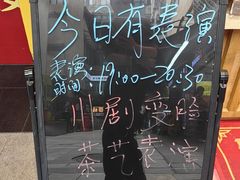 今日有表演
表演时间:19:00-20:30
川剧变脸
茶艺表演